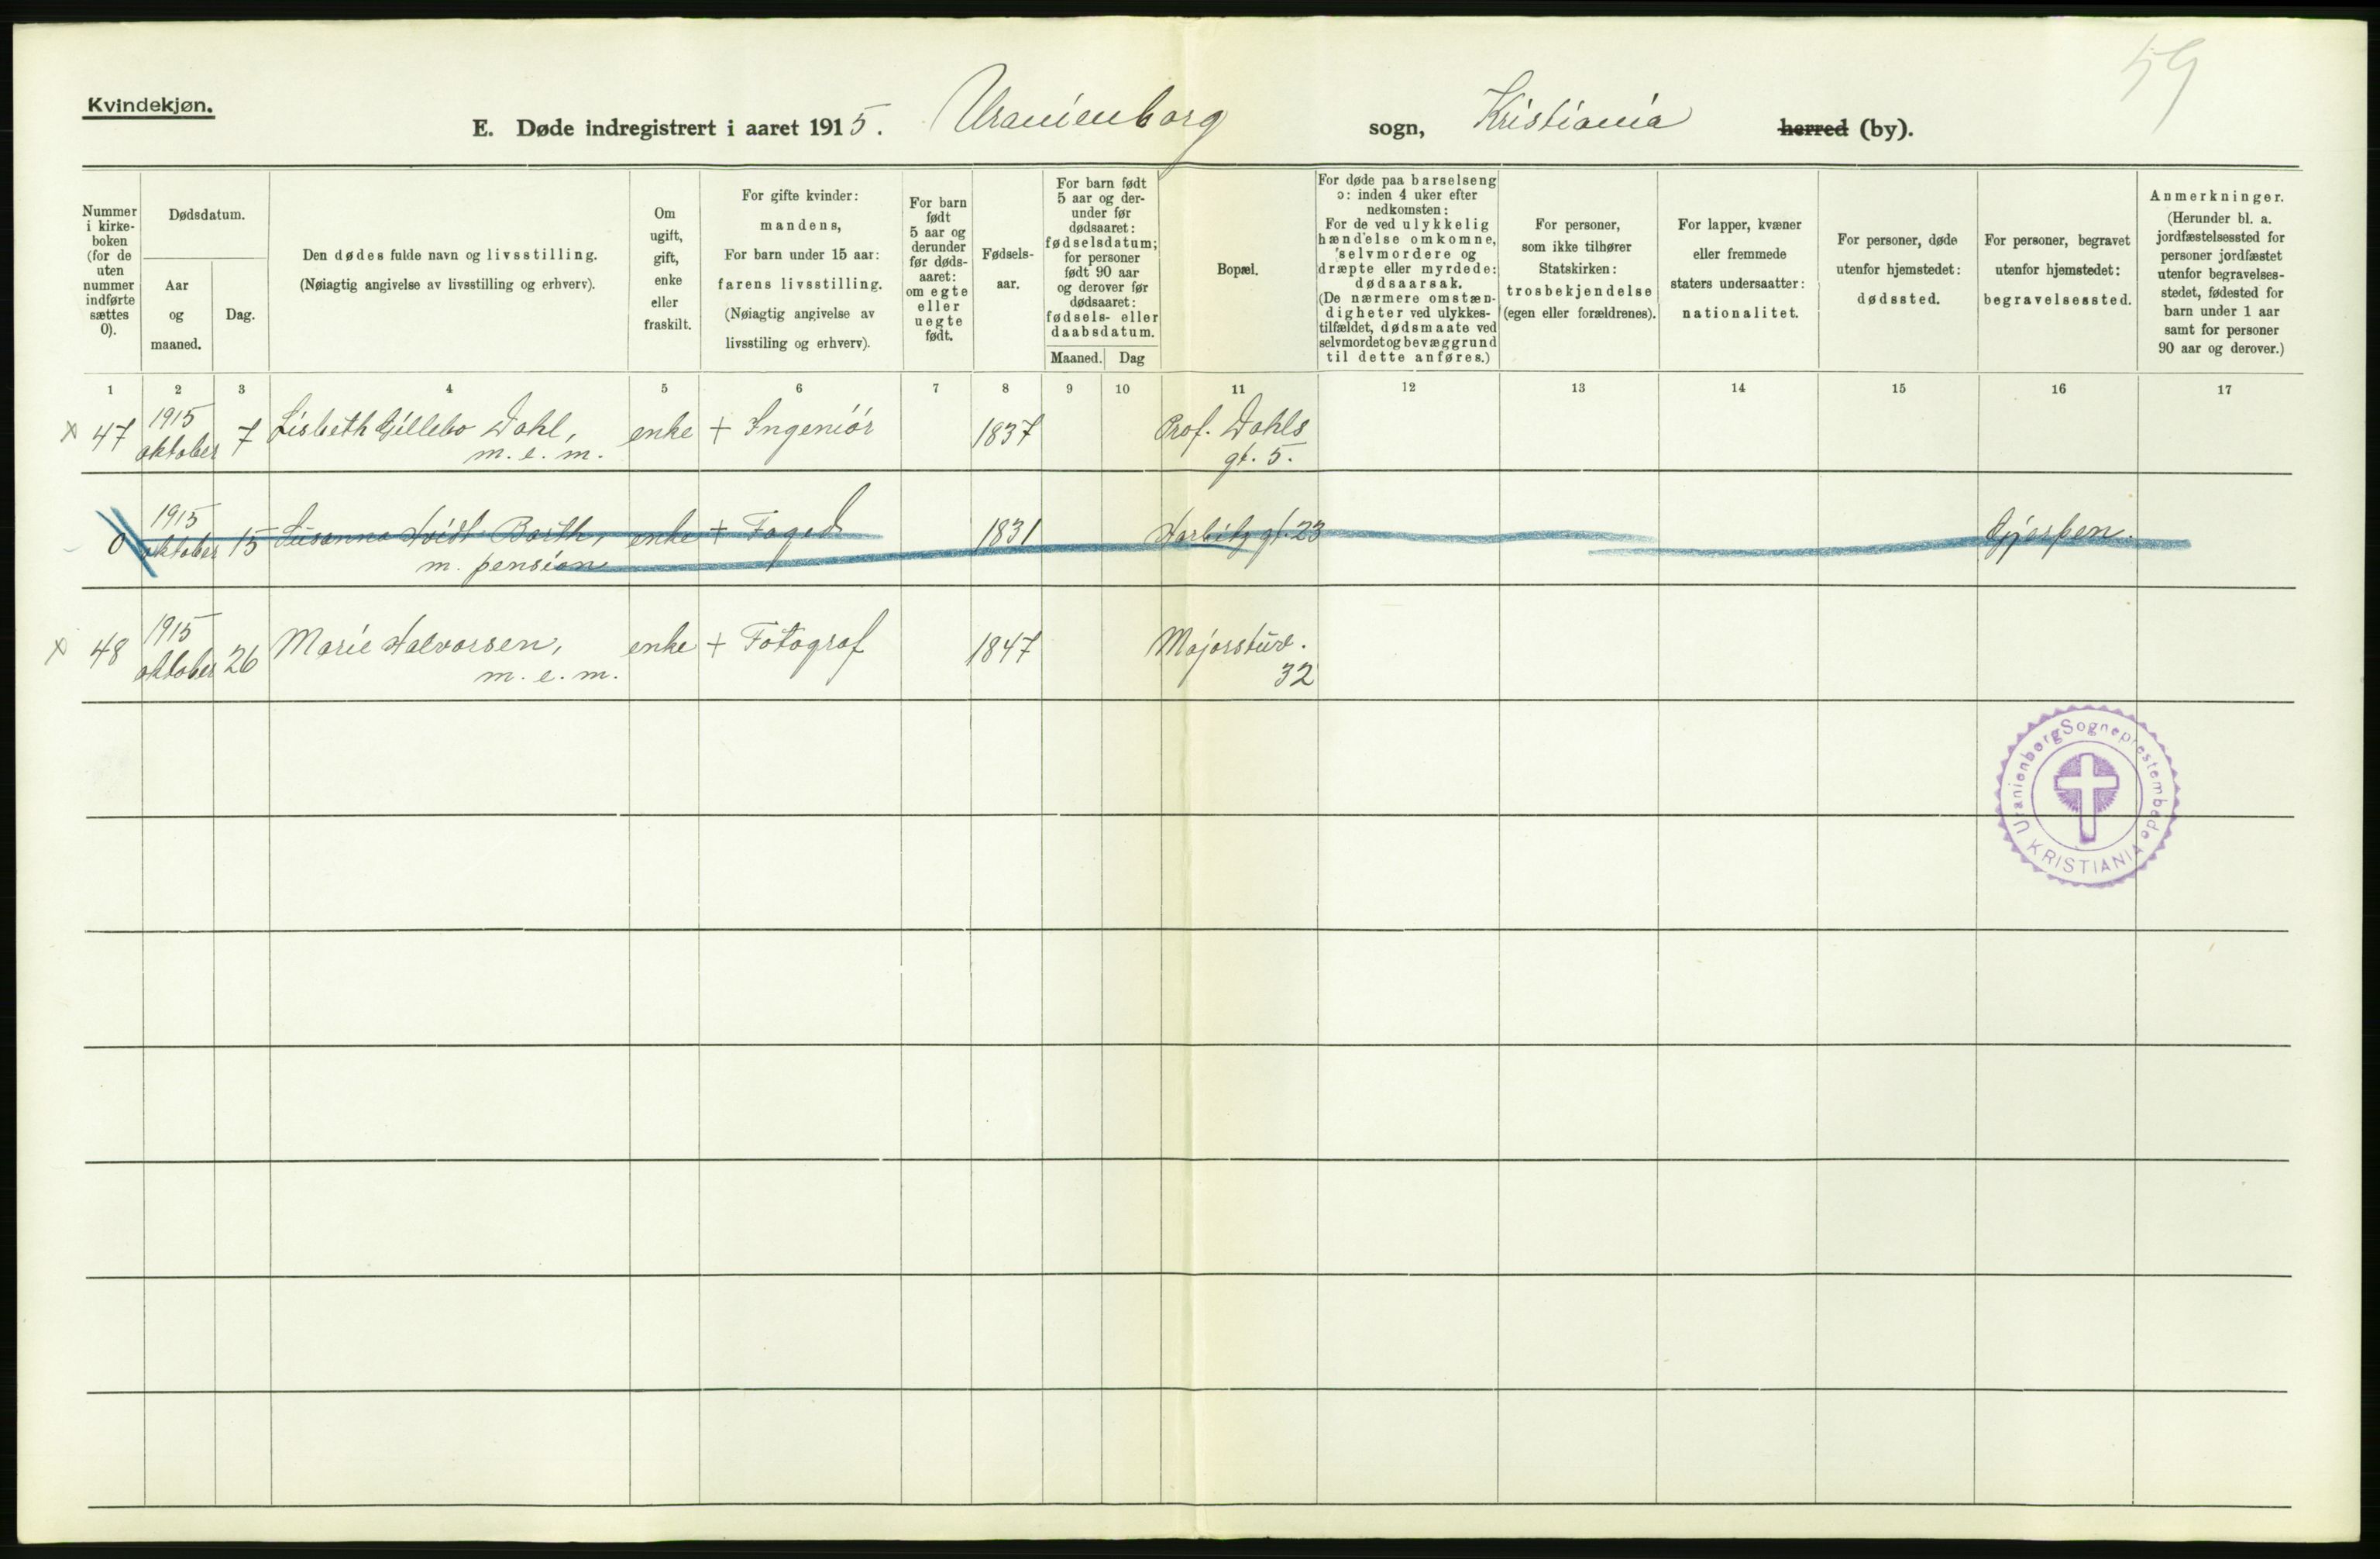 59
Kvindekjøn.
E. Døde indregistrert i aaret 1915. Uranienborg sogn, Kristiania herred (by).
Nummer i kirke-boken (for de uten nummer indførte sættes 0).
Dødsdatum.
Aar og maaned.
Dag.
Den dødes fulde navn og livsstilling.
(Nøiagtig angivelse av livsstilling og erhverv).
Om ugift, gift, enke eller fraskilt.
For gifte kvinder:
mandens,
For barn under 15 aar:
farens livsstilling.
(Nøiagtig angivelse av
livsstiling og erhverv).
For barn født 5 aar og derunder før døds-aaret: om egte eller uegte født.
Fødsels-aar.
For barn født
5 aar og der-
under før
dødsaaret:
fødselsdatum;
for personer
født 90 aar
og derover før
dødsaaret:
fødsels- eller
daabsdatum.
Maaned. Dag
Bopæl.
For døde paa barselseng
ɔ: inden 4 uker efter
nedkomsten:
For de ved ulykkelig
hændelse omkomne,
selvmordere og
dræpte eller myrdede:
dødsaarsak.
(De nærmere omstæn-
digheter ved ulykkes-
tilfældet, dødsmaate ved
selvmordet og bevæggrund
til dette anføres.)
For personer,
som ikke tilhører
Statskirken:
trosbekjendelse
(egen eller forældrenes).
For lapper, kvæner
eller fremmede
staters undersaatter:
nationalitet.
For personer, døde
utenfor hjemstedet:
dødssted.
For personer, begravet
utenfor hjemstedet:
begravelsessted.
Anmerkninger.
(Herunder bl. a.
jordfæstelsessted for
personer jordfæstet
utenfor begravelses-
stedet, fødested for
barn under 1 aar
samt for personer
90 aar og derover.)
1 2 3 4 5 6 7 8 9 10 11 12 13 14 15 16 17
x 47 1915 oktober 7 Lisbeth Gillebo Dahl, m. e. m. enke + Ingeniör 1837 Prof. Dahls gt. 5.
0 1915 oktober 15 Susanna Hvidt Barth, m. pension enke + Foged 1831 Harbitz gt. 23 Gjerpen.
x 48 1915 oktober 26 Marie Halvorsen, m. e. m. enke + Fotograf 1847 Majorstuv. 32
Uranienborg Sogneprestembede
KRISTIANIA